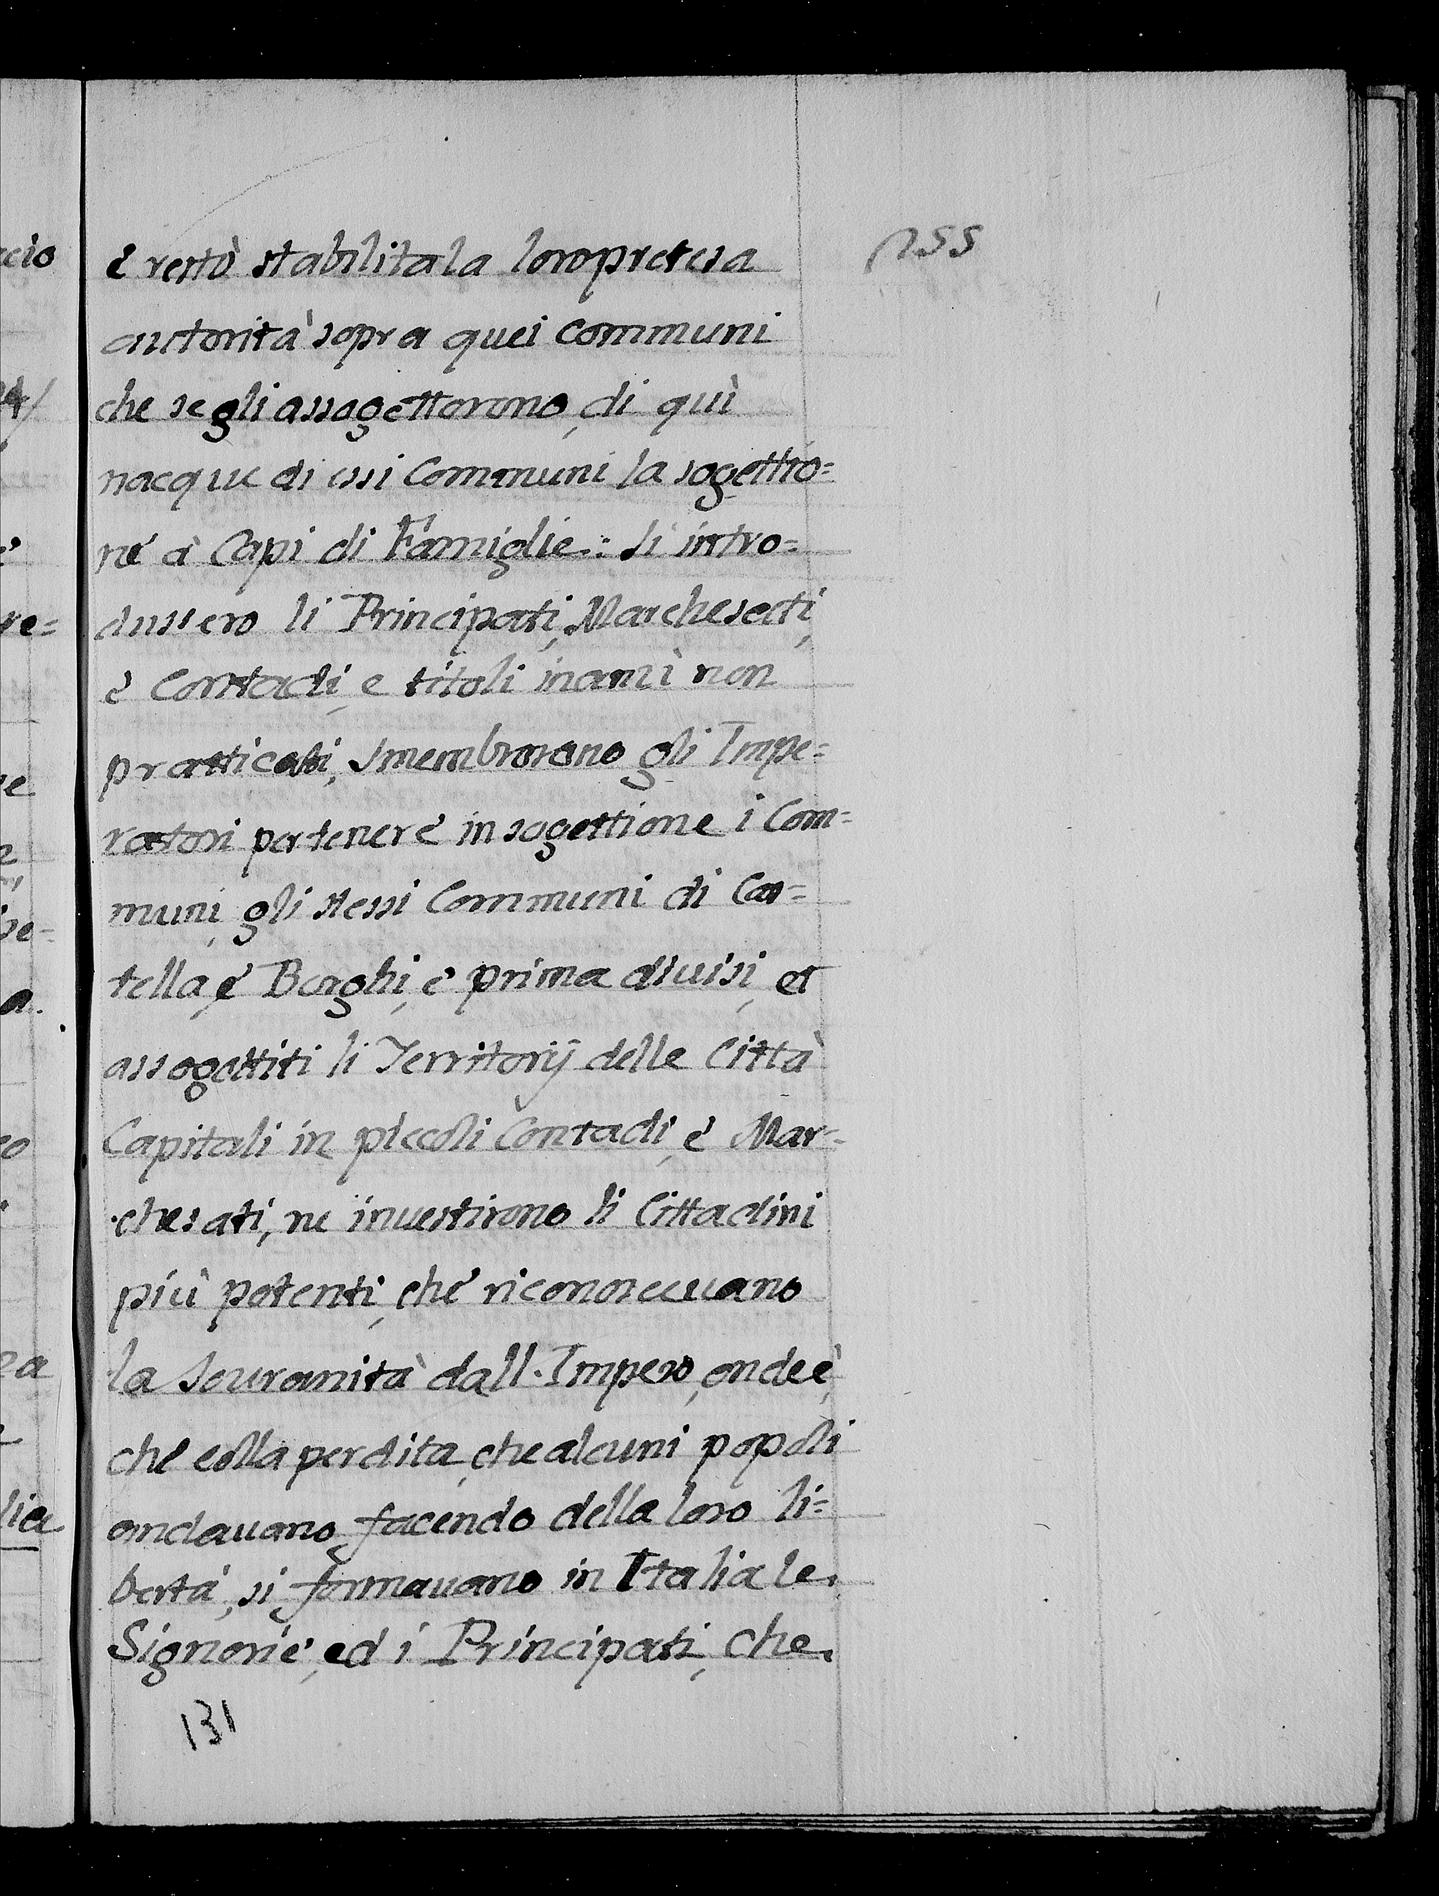 è restò stabilita la loro pretesa
autorità sopra quei Communi
che se gli assogettorono, di quì
nacque di essi Communi la sogettio=
ne à Capi di Famiglie: si intro=
dussero li Principati, Marchesati,
è Contadi, e titoli inanzi non
pratticati, smembrorono gli Impe=
ratori per tenere in sogettione i Com=
muni, gli stessi Communi di Cas=
tella, è Borghi, e prima diuisi, et
assogettiti li Territorij delle Città
Capitali in piccoli Contadi, è Mar=
chesati, ne inuestirono li Cittadini
più potenti, che riconosceuano
la Souranità dall'Impero, onde è,
che colla perdita, che alcuni popoli
andauano facendo della loro li=
bertà, si formauano in Italia le
Signorie, ed i Principati, che
131